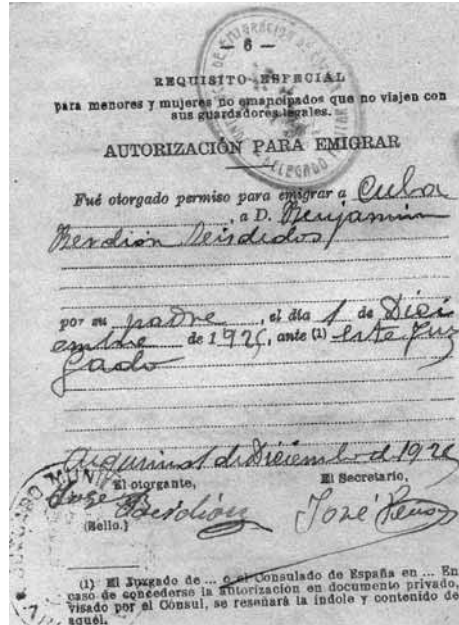 — 6 —
REQUISITO ESPECIAL
para menores y mujeres no emancipados que no viajen con
sus guardadores legales.
AUTORIZACIÓN PARA EMIGRAR
Fué otorgado permiso para emigrar a Cuba
, a D. Benjamin
Berdión Seisdedos
por su padre, el día 1 de Dici
embre de 192, ante (1) este Juz
gado
1 de Diciembre d 192
El otorgante,
El Secretario,
Jose Berdión
José
(Sello.)
(1) El Juzgado de ... o el Consulado de España en ... En
caso de concederse la autorización en documento privado,
visado por el Cónsul, se reseñará la índole y contenido de
aquél.